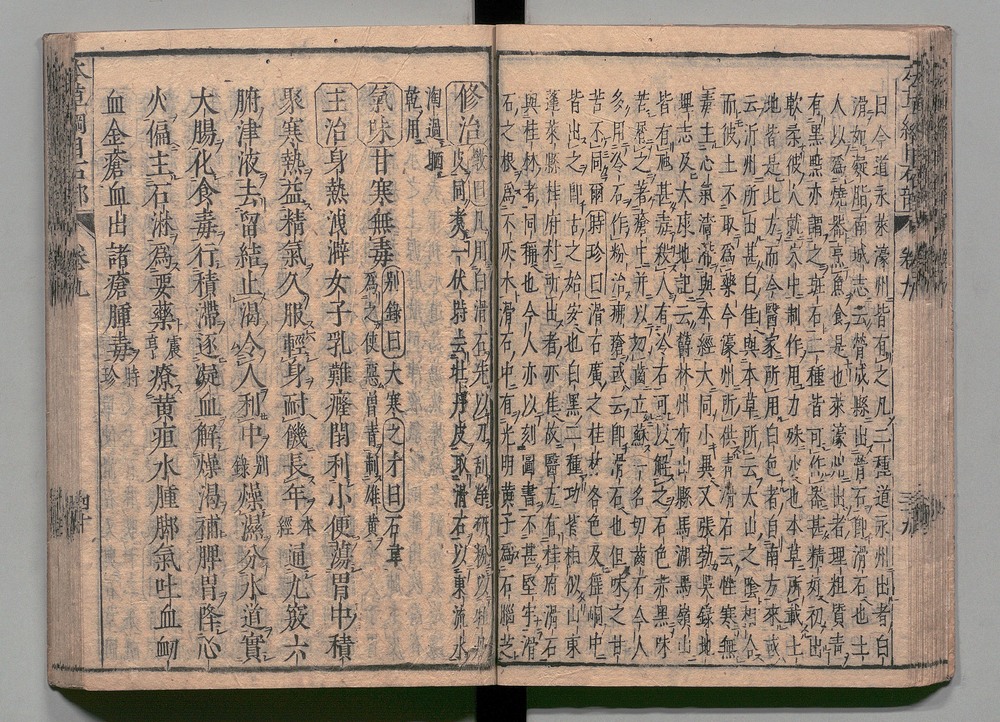 日今道永萊濠州皆有之凡二種道永州出者白
滑如凝脂南城志云膋成縣出膋石即滑石也土
人以爲燒器烹魚食是也萊濠州出者理粗質青
有黑點亦謂之斑石二種皆可作器甚精好初出
軟柔彼人就穴中制作用力殊少也本草所載土
地皆是北方而今醫家所用白色者自南方來或
云沂州所出甚白佳與本草所云太山之陰相合
而彼土不取爲藥今濠州所供青滑石云性寒無
毒主心氣澀滯與本經大同小異又張勃吳錄地
理志及大康地記云鬱林州布山縣馬湖馬嶺山
皆有虺甚毒殺人有冷石可以解之石色赤黑味
苦屑之著瘡中并以切齒立蘇一名切齒石今人
多用冷石作粉治疿瘡或云即滑石也但味之甘
苦不同爾時珍曰滑石廣之桂林各色及猺峒中
皆出之即古之始安也白黑二種功皆相似山東
蓬萊縣桂府村所出者亦佳故醫方有桂府滑石
與桂林者同稱也今人亦以刻圖書不甚堅牢滑
石之根爲不灰木滑石中有光明黃子爲石腦芝
修治 斅曰凡用白滑石先以刀刮淨研粉以牡丹
皮同煮一伏時去牡丹皮取滑石以東流水
淘過晒
乾用
氣味 甘寒無毒 別錄曰大寒之才曰石韋
爲之使惡曾青制雄黃
主治 身熱洩澼女子乳難癃閉利小便蕩胃中積
聚寒熱益精氣久服輕身耐饑長年 本經 通九竅六
腑津液去留結止渴令人利中 別錄 燥濕分水道實
大腸化食毒行積滯逐凝血解燥渴補脾胃降心
火偏主石淋爲要藥 震亨 療黃疸水腫脚氣吐血衄
血金瘡血出諸瘡腫毒 時珍
本草綱目石部 卷九 四十